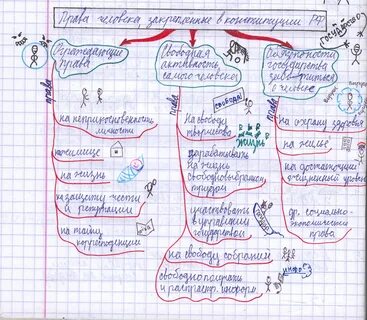 Права человека закрепленные в конституции РФ
государство
Ограждающие
права
Свободная
активность
самого человека
Обязанности
государства
заботиться
о человеке
права
на неприкосновенность
личности
на жилище
на жизнь
на защиту чести
и репутации
на тайну
корреспонденции
права
свобода
На свободу
творчества
жизнь
зарабатывать
на жизнь
свободно выбранным
трудом
участвовать
в управлении
государством
на свободу собраний
свободно получать
и распростр. информ.
инфо
права
на охрану здоровья
на жилье
на достаточный
жизненный уровень
др. социально-
экономические
права